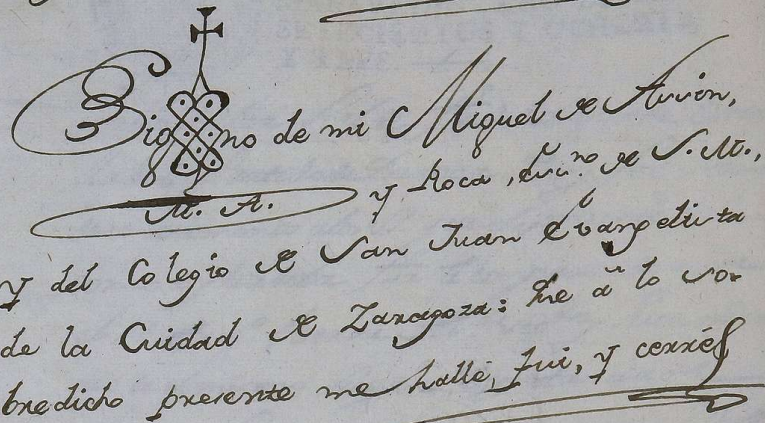 Signo de mi Miguel de Assin,
y Roca, Ess.no de S. M.,
M. A.
y del Colegio de San Juan Evangelista
de la Cuidad de Zaragoza: que a lo so-
bredicho presente me hallé, fui, y cerré